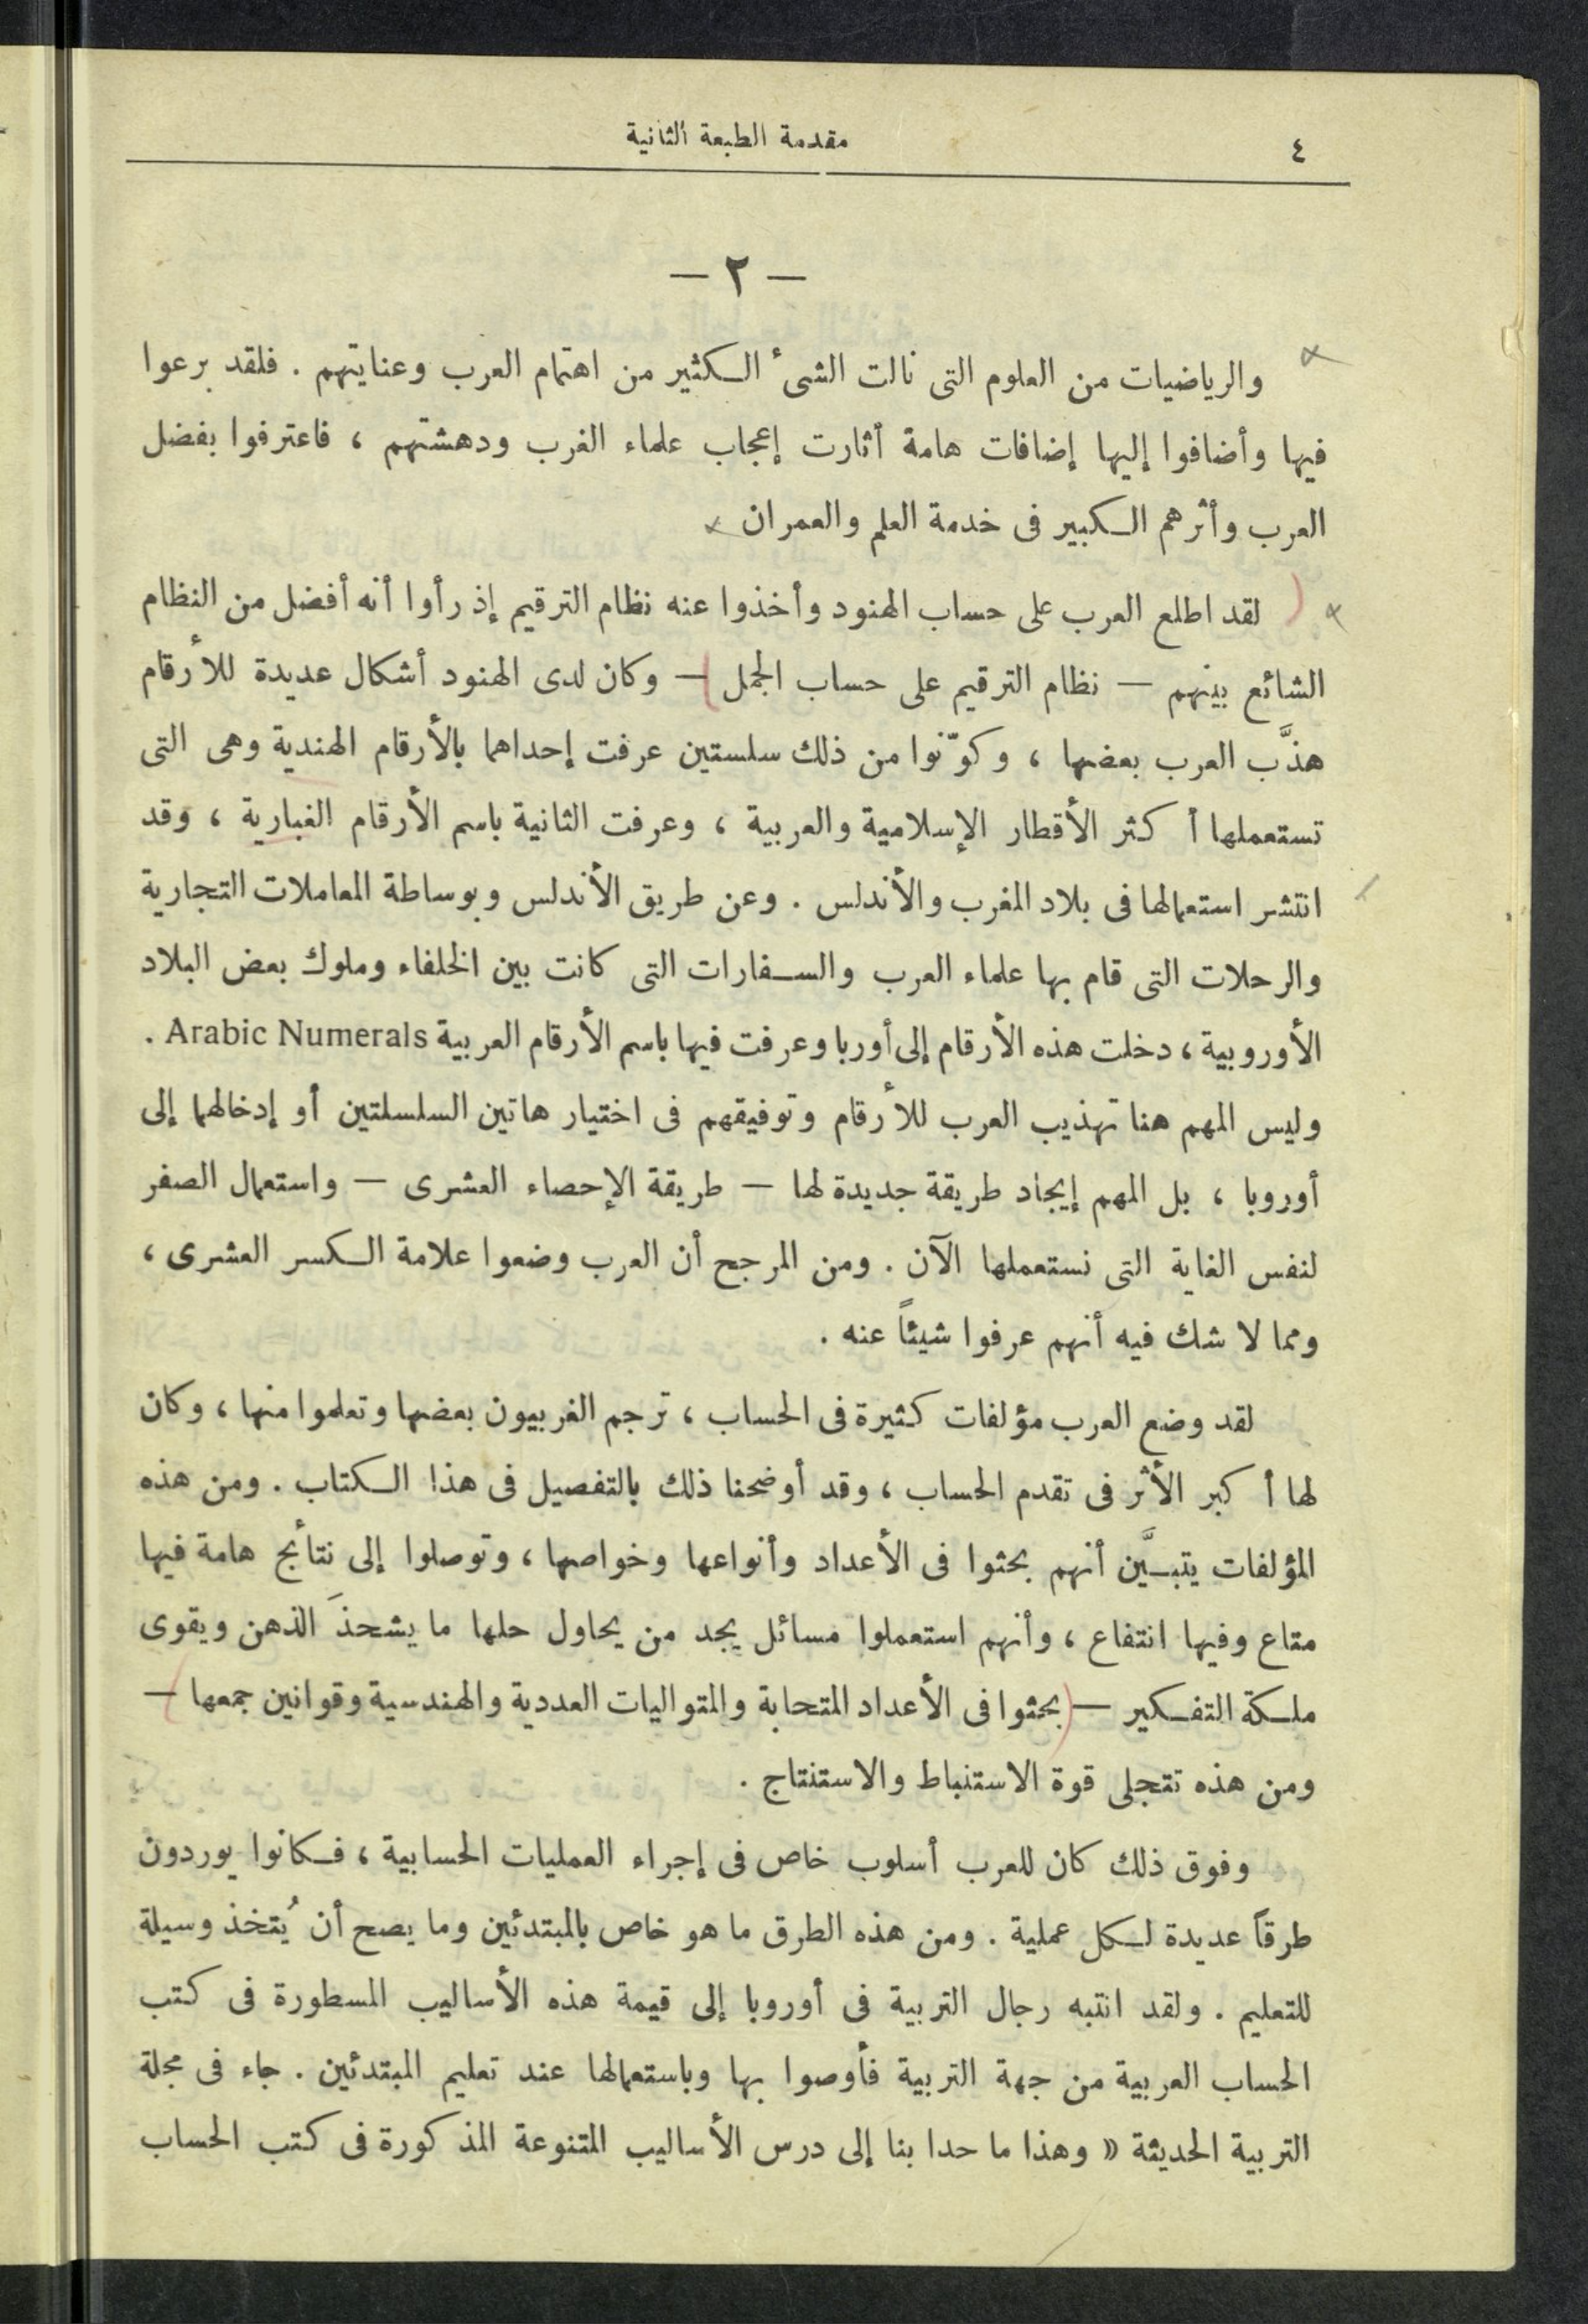 ٤
مقدمة الطبعة الثانية
— ٢ —
والرياضيات من العلوم التى نالت الشىء الكثير من اهتمام العرب وعنايتهم . فلقد برعوا
فيها وأضافوا إليها إضافات هامة أثارت إعجاب علماء الغرب ودهشتهم ، فاعترفوا بفضل
العرب وأثرهم الكبير فى خدمة العلم والعمران
لقد اطلع العرب على حساب الهنود وأخذوا عنه نظام الترقيم إذ رأوا أنه أفضل من النظام
الشائع بينهم — نظام الترقيم على حساب الجمل — وكان لدى الهنود أشكال عديدة للأرقام
هذَّب العرب بعضها ، وكوّنوا من ذلك سلستين عرفت إحداهما بالأرقام الهندية وهى التى
تستعملها أكثر الأقطار الإسلامية والعربية ، وعرفت الثانية باسم الأرقام الغبارية ، وقد
انتشر استعمالها فى بلاد المغرب والأندلس . وعن طريق الأندلس وبوساطة المعاملات التجارية
والرحلات التى قام بها علماء العرب والسفارات التى كانت بين الخلفاء وملوك بعض البلاد
الأوروبية ، دخلت هذه الأرقام إلى أوربا وعرفت فيها باسم الأرقام العربية Arabic Numerals .
وليس المهم هنا تهذيب العرب للأرقام وتوفيقهم فى اختيار هاتين السلسلتين أو إدخالهما إلى
أوروبا ، بل المهم إيجاد طريقة جديدة لها — طريقة الإحصاء العشرى — واستعمال الصفر
لنفس الغاية التى نستعملها الآن . ومن المرجح أن العرب وضعوا علامة الكسر العشرى ،
ومما لا شك فيه أنهم عرفوا شيئاً عنه .
لقد وضع العرب مؤلفات كثيرة فى الحساب ، ترجم الغربيون بعضها وتعلموا منها ، وكان
لها أكبر الأثر فى تقدم الحساب ، وقد أوضحنا ذلك بالتفصيل فى هذا الكتاب . ومن هذه
المؤلفات يتبيَّن أنهم بحثوا فى الأعداد وأنواعها وخواصها ، وتوصلوا إلى نتائج هامة فيها
متاع وفيها انتفاع ، وأنهم استعملوا مسائل يجد من يحاول حلها ما يشحذَ الذهن ويقوى
ملكة التفكير — (بحثوا فى الأعداد المتحابة والمتواليات العددية والهندسية وقوانين جمعها) —
ومن هذه تتجلى قوة الاستنباط والاستنتاج .
وفوق ذلك كان للعرب أسلوب خاص فى إجراء العمليات الحسابية ، فكانوا يوردون
طرقاً عديدة لكل عملية . ومن هذه الطرق ما هو خاص بالمبتدئين وما يصح أن يُتخذ وسيلة
للتعليم . ولقد انتبه رجال التربية فى أوروبا إلى قيمة هذه الأساليب المسطورة فى كتب
الحساب العربية من جهة التربية فأوصوا بها وباستعمالها عند تعليم المبتدئين . جاء فى مجلة
التربية الحديثة « وهذا ما حدا بنا إلى درس الأساليب المتنوعة المذكورة فى كتب الحساب